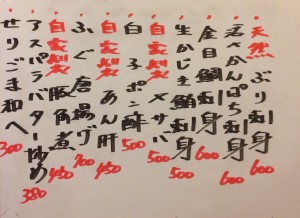 天然 ぶり刺身 600
かんぱち刺身 600
金目鯛刺身 600
生かじき鮪刺身 500
自家製 〆サバ 500
白子ポン酢 500
自家製 あん肝 450
ふぐ唐揚げ 700
自家製 豚角煮 450
アスパラバター炒め 380
せりごま和へ 300